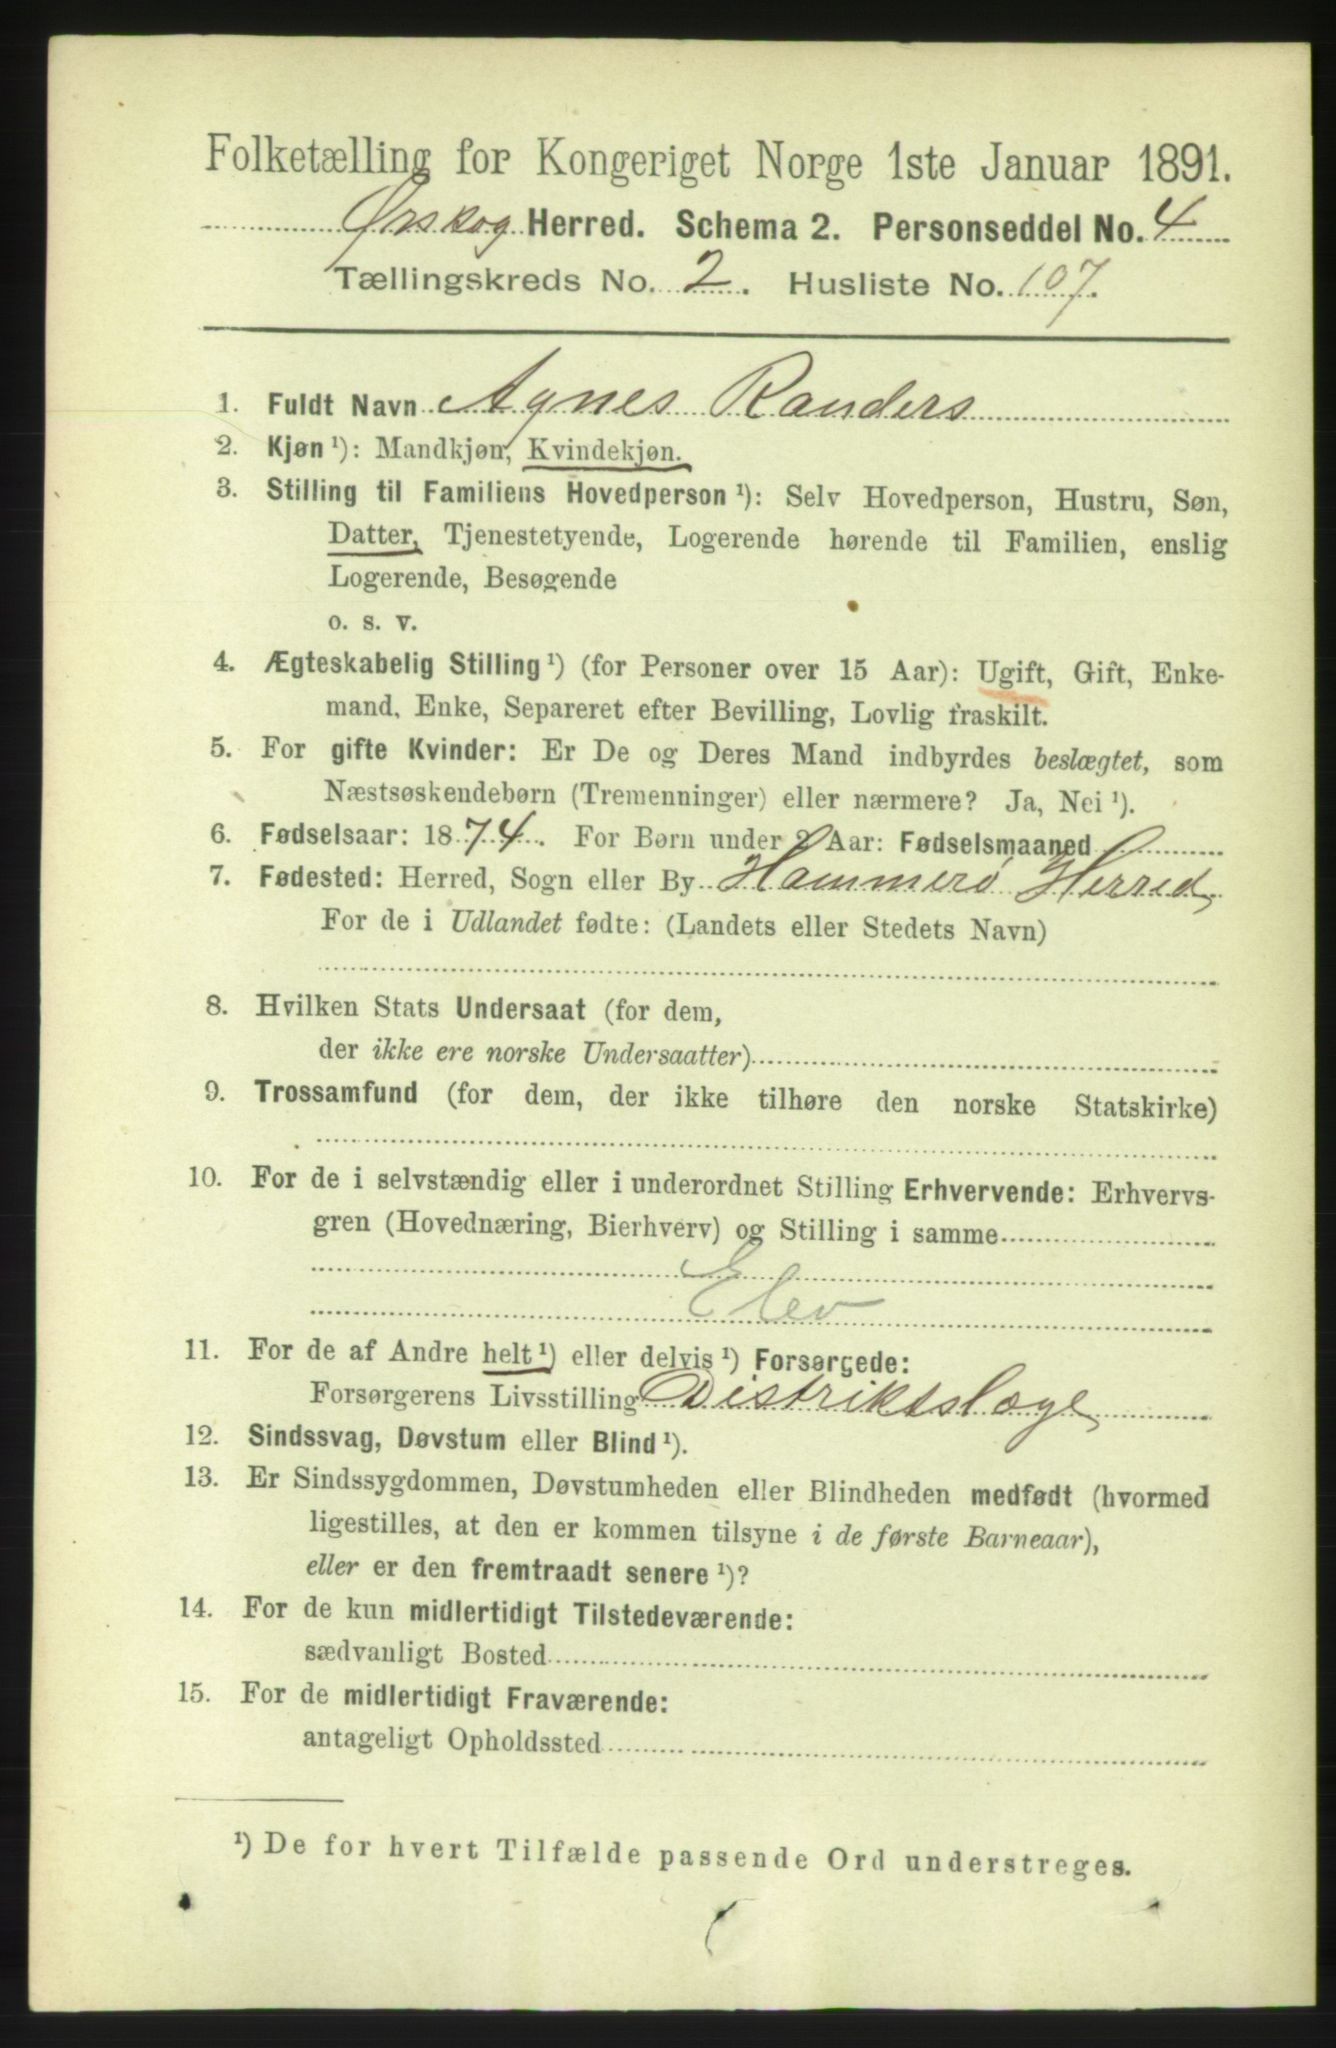 Folketælling for Kongeriget Norge 1ste Januar 1891.
Ørskog Herred. Schema 2. Personseddel No. 4
Tællingskreds No. 2. Husliste No. 107.
1. Fuldt Navn Agnes Randers
2. Kjøn ¹): Mandkjøn, Kvindekjøn.
3. Stilling til Familiens Hovedperson ¹): Selv Hovedperson, Hustru, Søn,
Datter, Tjenestetyende, Logerende hørende til Familien, enslig
Logerende, Besøgende
o. s. v.
4. Ægteskabelig Stilling ¹) (for Personer over 15 Aar): Ugift, Gift, Enke-
mand, Enke, Separeret efter Bevilling, Lovlig fraskilt.
5. For gifte Kvinder: Er De og Deres Mand indbyrdes beslægtet, som
Næstsøskendebørn (Tremenninger) eller nærmere? Ja, Nei ¹).
6. Fødselsaar: 1874. For Børn under 2 Aar: Fødselsmaaned
7. Fødested: Herred, Sogn eller By Hammerø Herred
For de i Udlandet fødte: (Landets eller Stedets Navn)
8. Hvilken Stats Undersaat (for dem,
der ikke ere norske Undersaatter)
9. Trossamfund (for dem, der ikke tilhøre den norske Statskirke)
10. For de i selvstændig eller i underordnet Stilling Erhvervende: Erhvervs-
gren (Hovednæring, Bierhverv) og Stilling i samme
Elev
11. For de af Andre helt ¹) eller delvis ¹) Forsørgede:
Forsørgerens Livsstilling Distriktslæge
12. Sindssvag, Døvstum eller Blind ¹).
13. Er Sindssygdommen, Døvstumheden eller Blindheden medfødt (hvormed
ligestilles, at den er kommen tilsyne i de første Barneaar),
eller er den fremtraadt senere ¹)?
14. For de kun midlertidigt Tilstedeværende:
sædvanligt Bosted
15. For de midlertidigt Fraværende:
antageligt Opholdssted
¹) De for hvert Tilfælde passende Ord understreges.